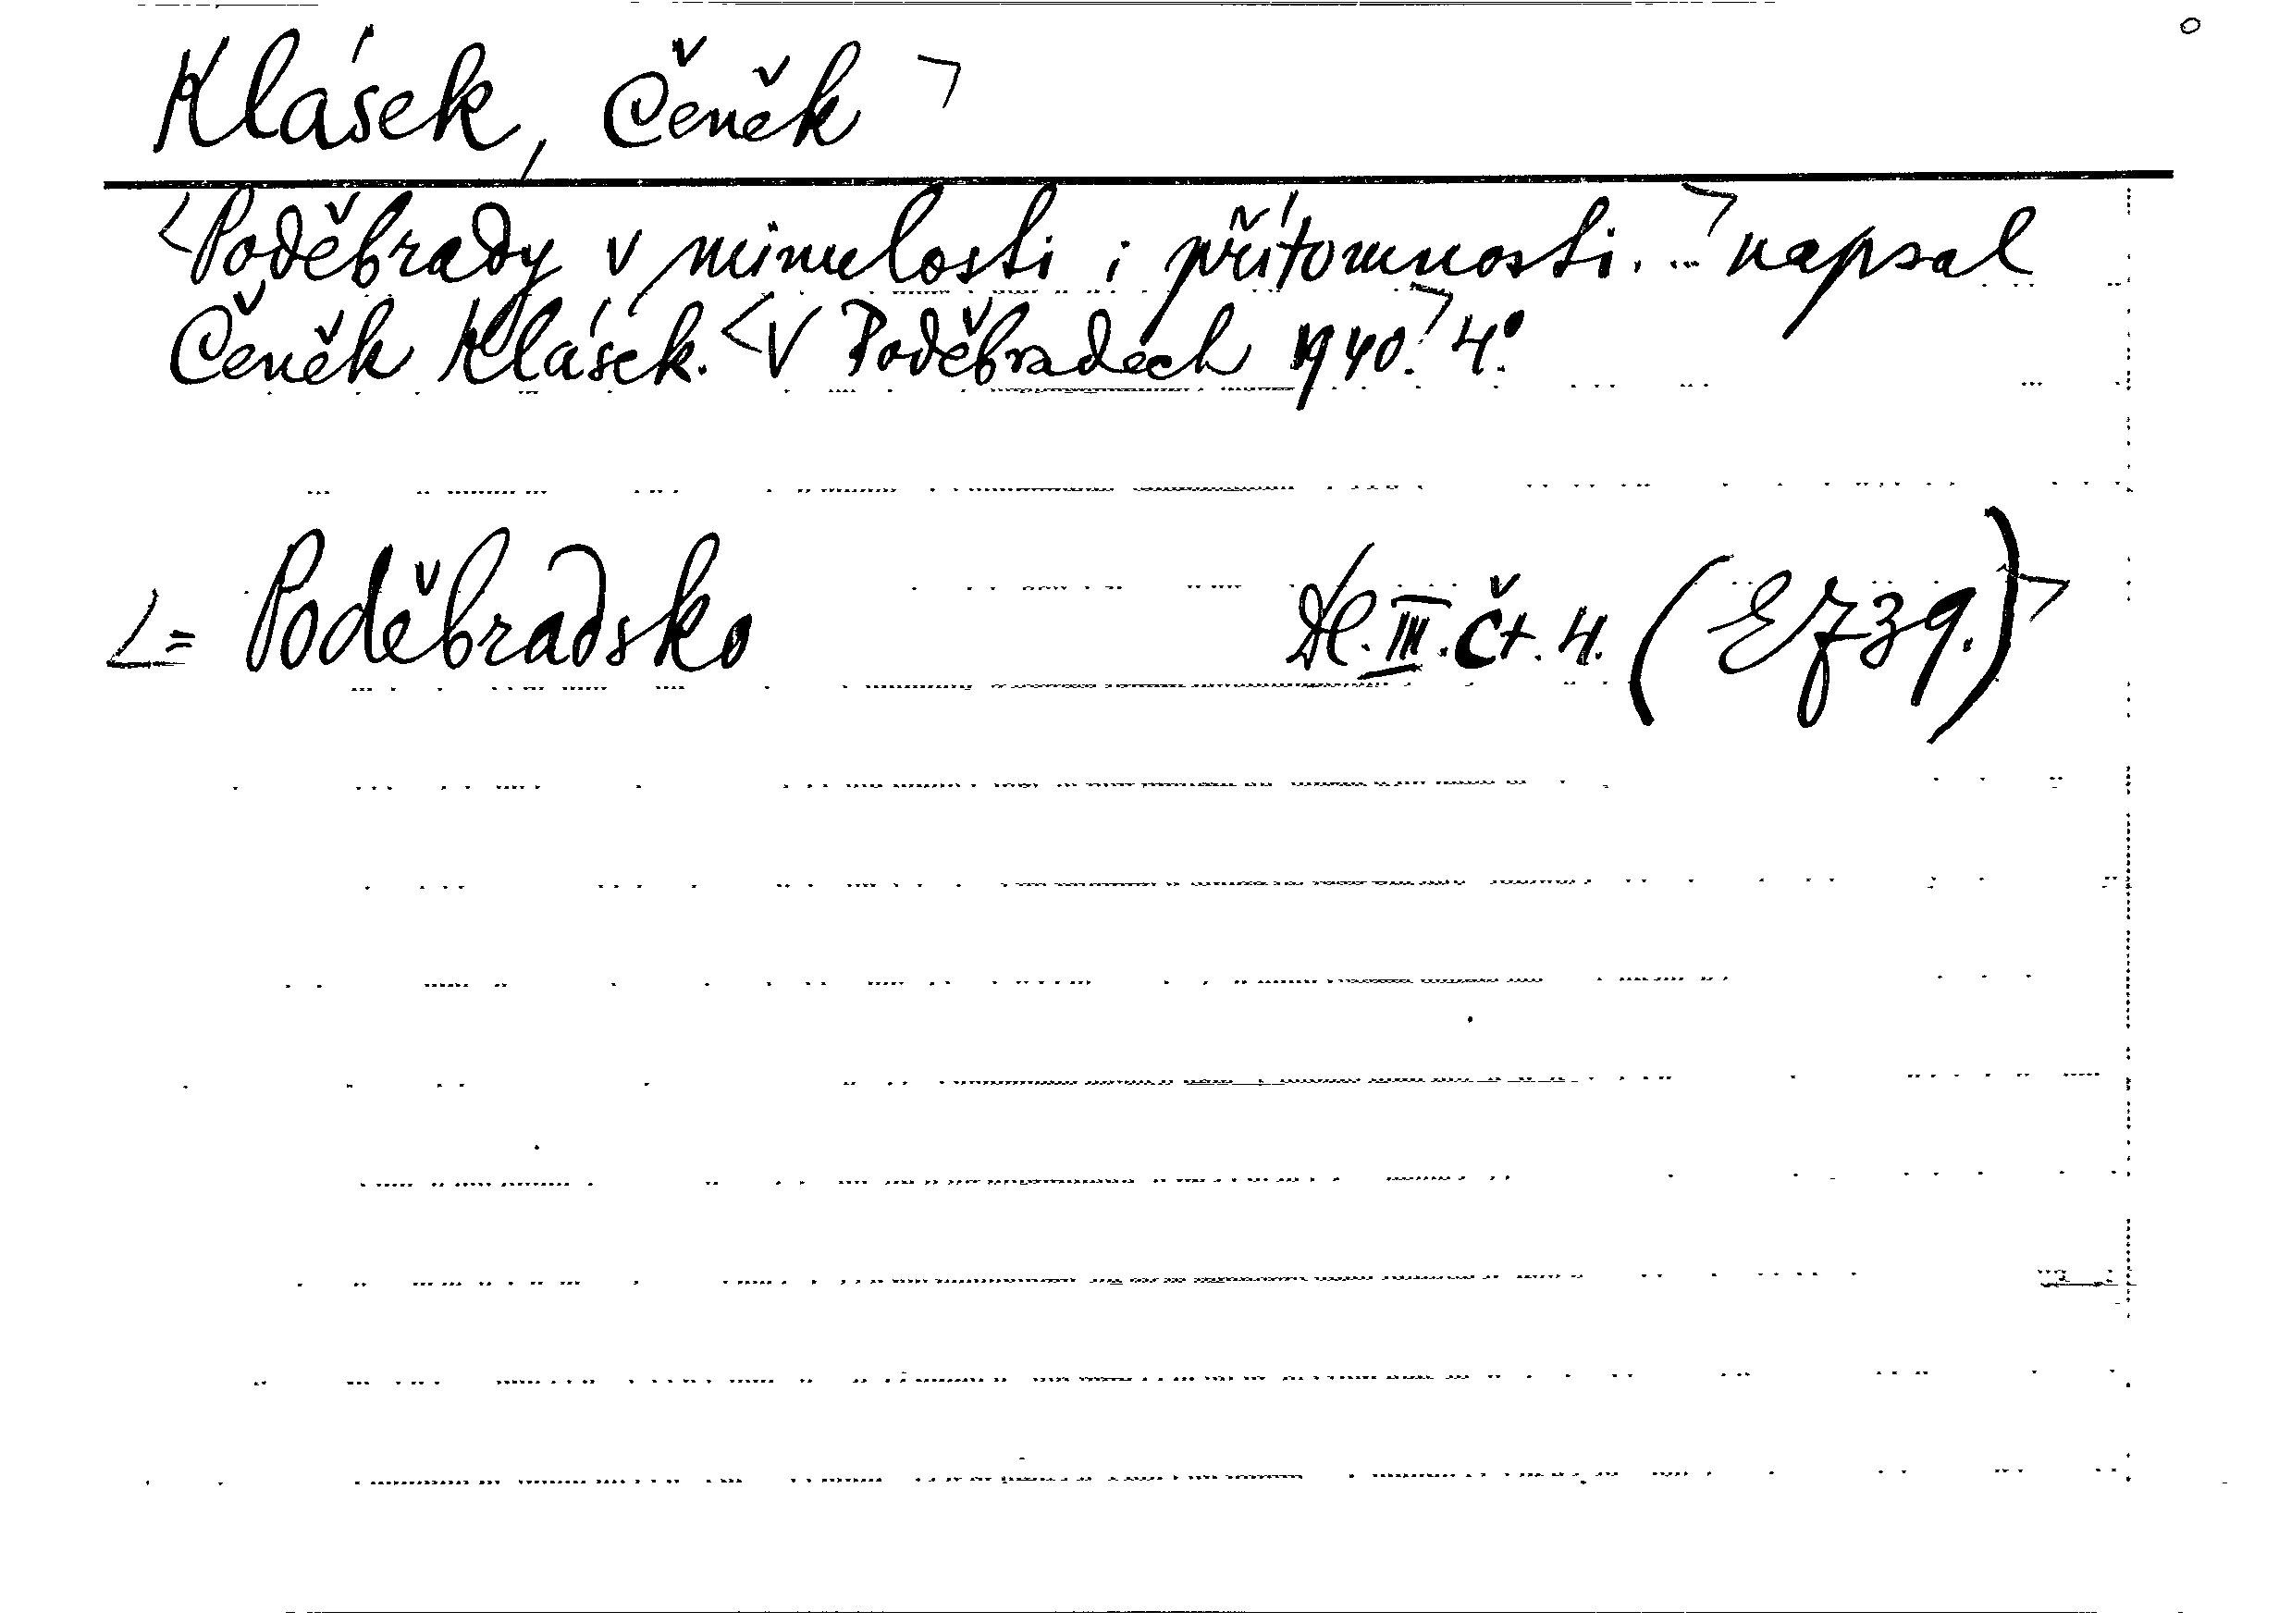 Klásek, Čeněk ┐
<Poděbrady v minulosti i přítomnosti. ..┐ napsal
Čeněk Klásek. <V Poděbradech 1940.┐ 4.°
<= Poděbradsko Dl. III. čt. 4.